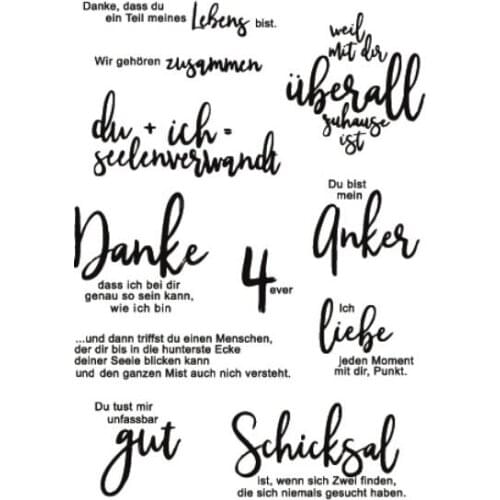 Danke, dass du
ein Teil meines Lebens bist.
Wir gehören zusammen
weil
mit dir
überall
zuhause
ist
du + ich =
seelenverwandt
Du bist
mein
Anker
Danke
dass ich bei dir
genau so sein kann,
wie ich bin
4
ever
Ich
liebe
jeden Moment
mit dir, Punkt.
...und dann triffst du einen Menschen,
der dir bis in die hunterste Ecke
deiner Seele blicken kann
und den ganzen Mist auch nich versteht.
Du tust mir
unfassbar
gut
Schicksal
ist, wenn sich Zwei finden,
die sich niemals gesucht haben.